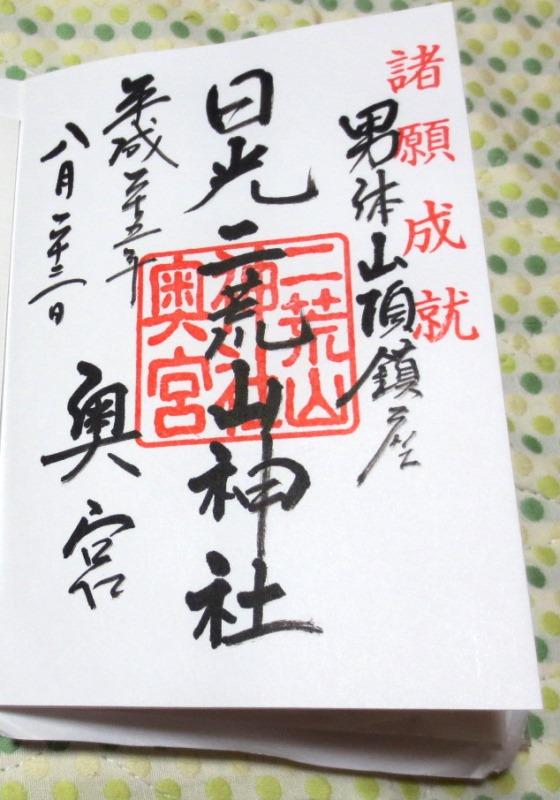 諸願成就
男体山頂鎮座
日光二荒山神社
二荒山
神社
奥宮
平成二十五年
八月二十二日
奥宮